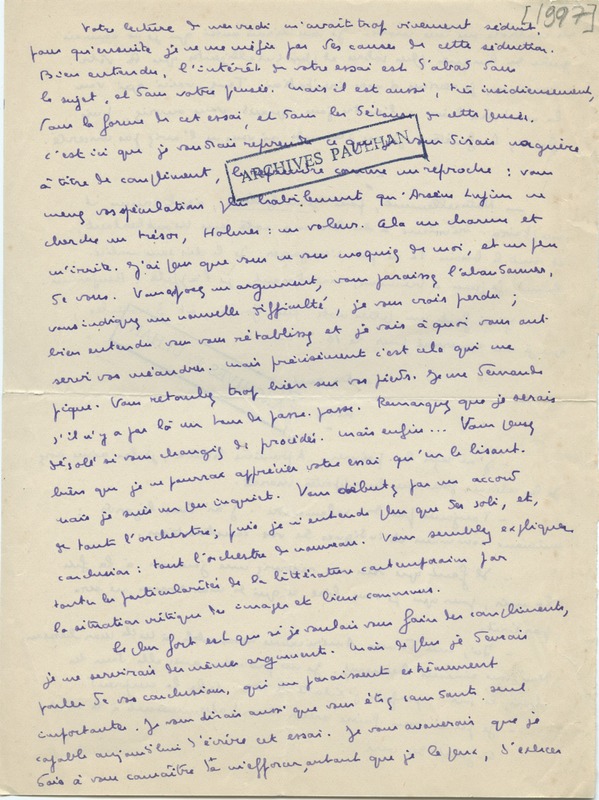 [1997]
Votre lecture de mercredi m'avait trop vivement séduit,
pour qu'ensuite je ne me méfie pas des causes de cette séduction.
Bien entendu, l'intérêt de votre essai est d'abord dans
le sujet, et dans votre pensée. Mais il est aussi, très insidieusement,
dans la forme de cet essai, et dans les détours de cette pensée.
C'est ici que je voudrais reprendre ce que je vous disais naguère
à titre de compliment, comme un reproche : vous
ARCHIVES PAULHAN
menez vos spéculations plus habilement qu'Arsène Lupin ne
cherche un trésor, Holmes : un voleur. Cela me charme et
m'irrite. J'ai peur que vous ne vous moquiez de moi, et un peu
de vous. Vous posez un argument, vous paraissez l'abandonner,
vous indiquez une nouvelle difficulté, je vous crois perdu ;
bien entendu vous vous rétablissez et je vois à quoi vous ont
servi vos méandres. Mais précisément c'est cela qui me
pique. Vous retombez trop bien sur vos pieds. Je me demande
s'il n'y a pas là un tour de passe-passe. Remarquez que je serais
désolé si vous changiez de procédés. Mais enfin... Vous
bien que je ne pourrai apprécier votre essai qu'en le lisant.
Mais je suis un peu inquiet. Vous débutez par un accord
de tout l'orchestre ; puis je n'entends plus que des soli, et,
conclusion : tout l'orchestre de nouveau. Vous semblez expliquer
toutes les particularités de la littérature contemporaine par
la situation critique des images et lieux communs.
Le plus fort est que si je voulais vous faire des compliments,
je me servirais des mêmes arguments. Mais de plus je devrais
parler de vos conclusions, qui me paraissent extrêmement
importantes. Je vous dirais aussi que vous êtes sans doute seul
capable aujourd'hui d'écrire cet essai. Je vous avouerais que je
dois à vous connaître de m'efforcer, autant que je le peux, d'